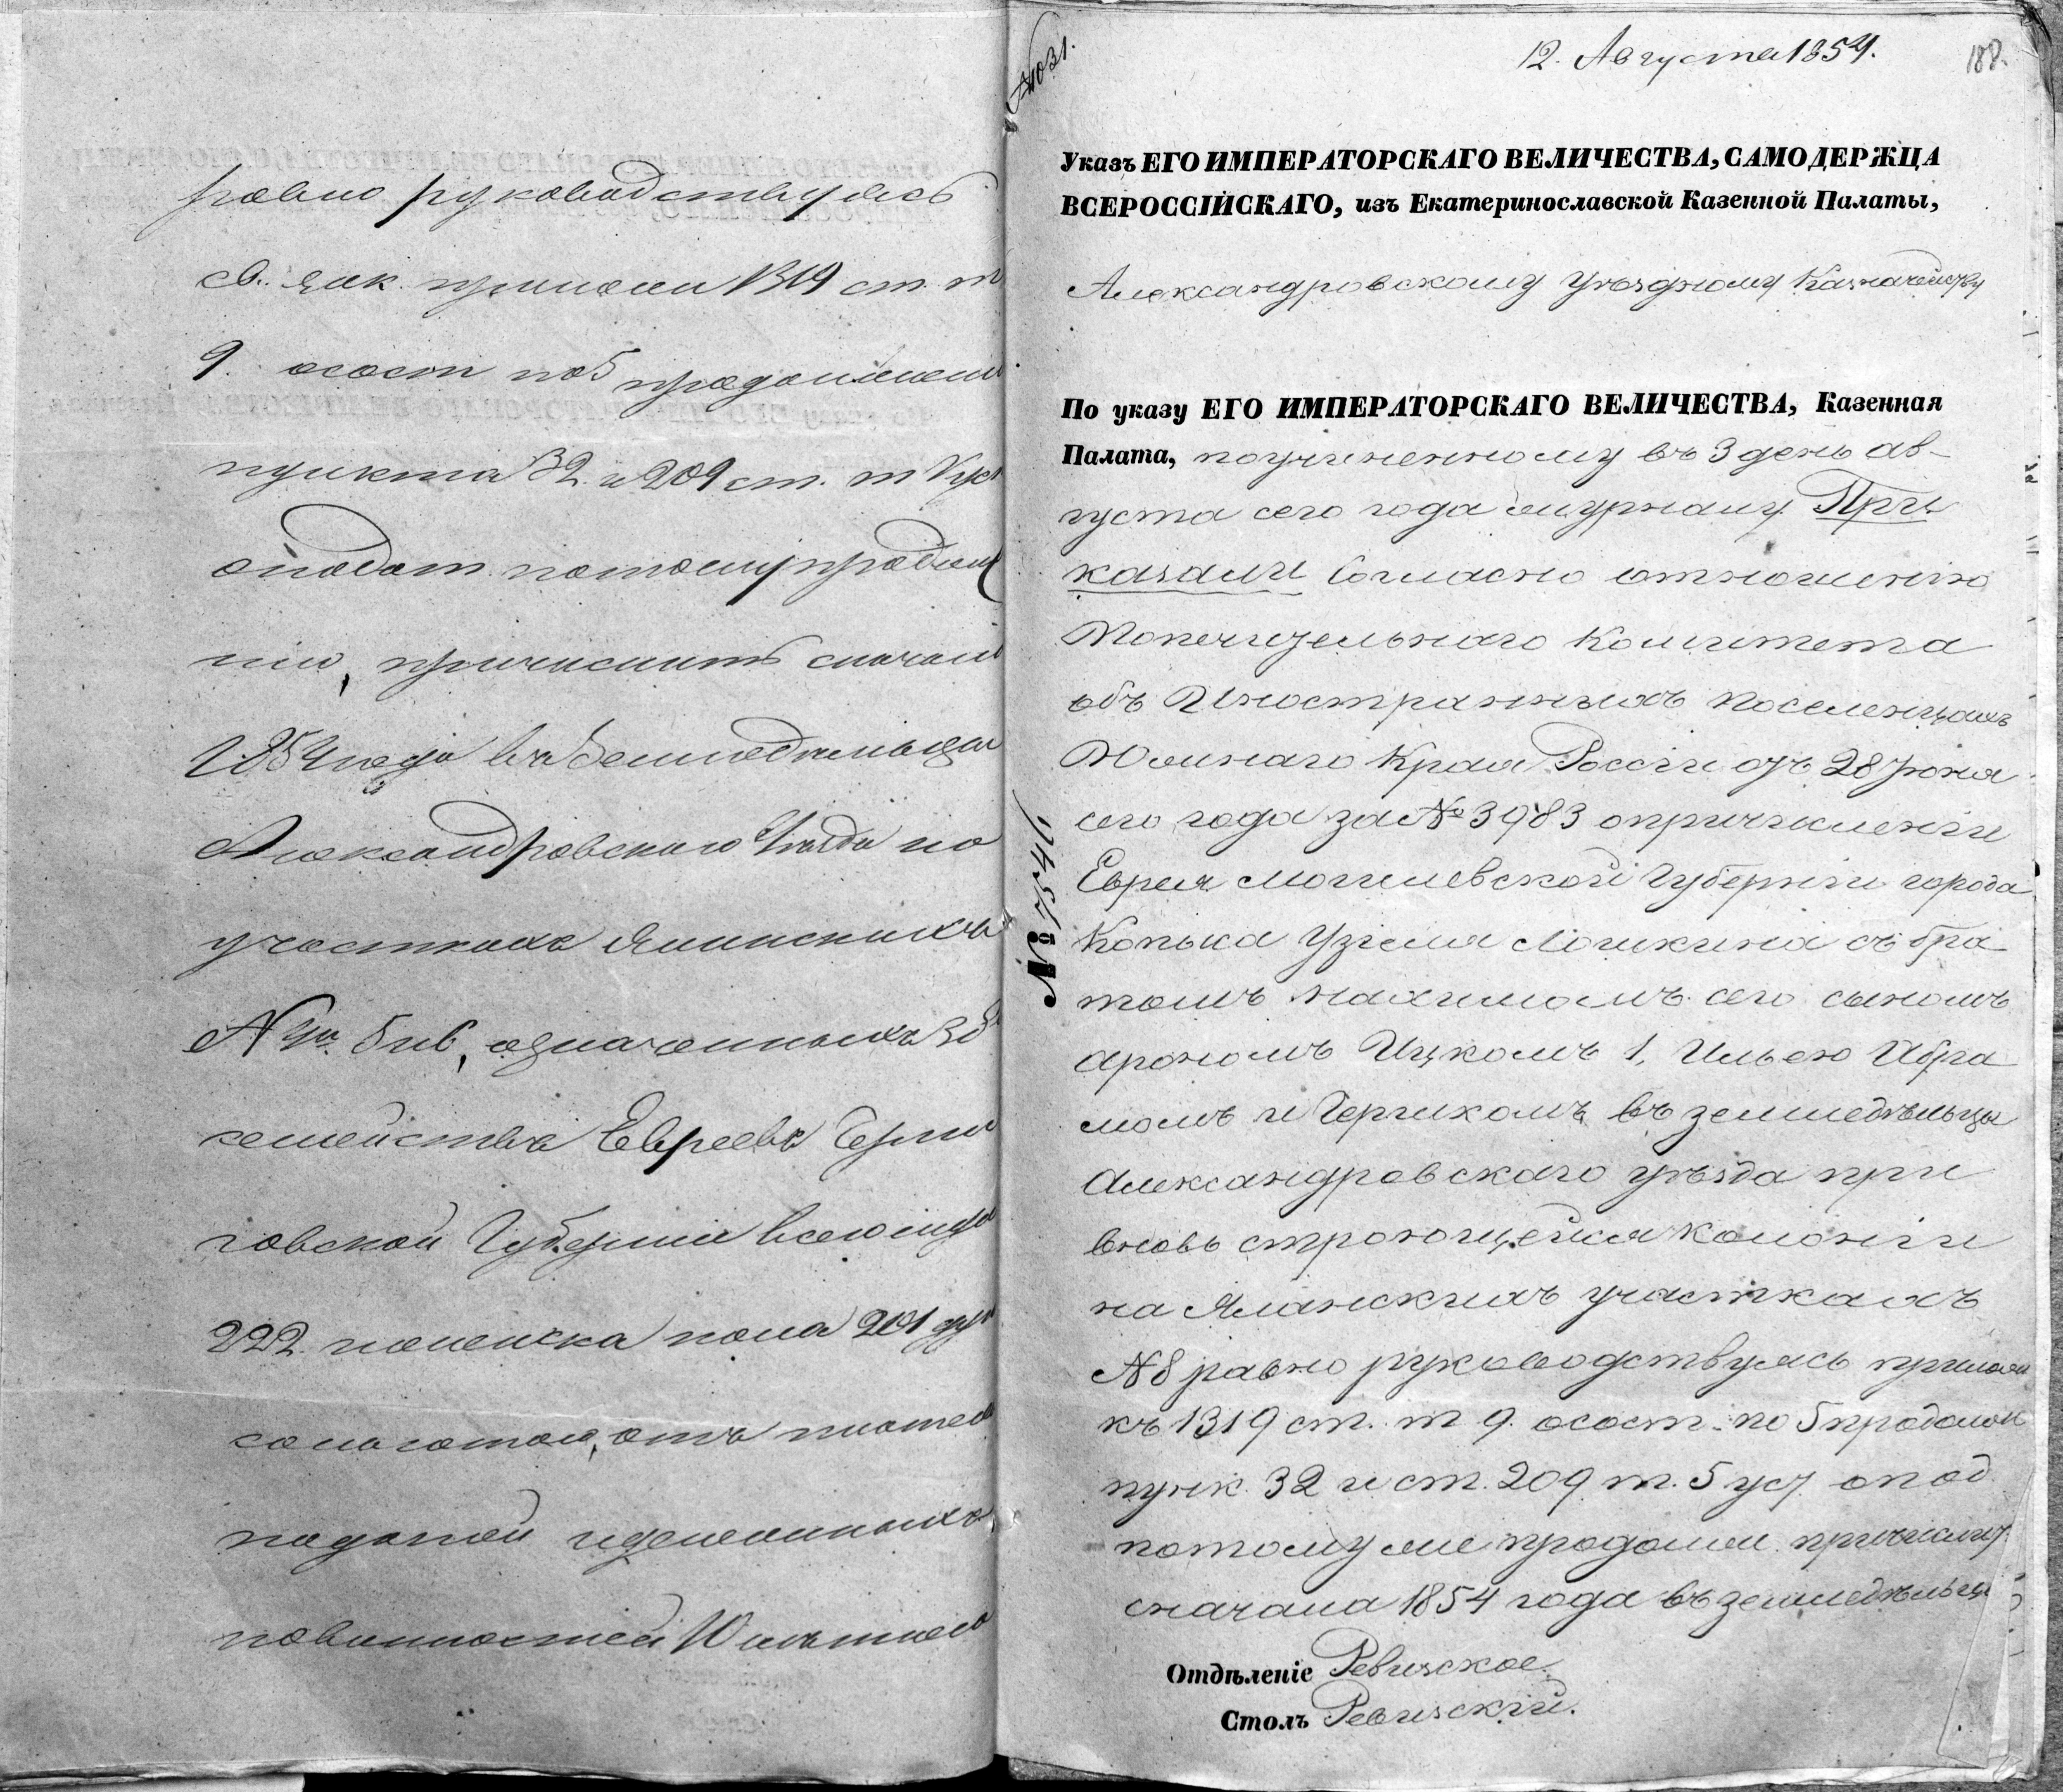 равно руководствуясь
св. зак. примеч 1319 ст. т
9. о сост по 5 продолжен
пункта 32. и 209 ст. т V уст
о подат. потому продолже
нію, причислить сначала
1854 года въ Земледельцы
Александровскаго Уезда на
участкахъ Яланскихъ
№ 5 и 6, означенныхъ
семействъ Евреевъ Черни
говской Губерніи всего муж
222. женска пола 201 душ
со льготою, отъ платежа
податей и денежныхъ
повинностей 10 летнею
№ 1031.
12. Августа 1854.
188.
Указъ ЕГО ИМПЕРАТОРСКАГО ВЕЛИЧЕСТВА, САМОДЕРЖЦА
ВСЕРОССІЙСКАГО, изъ Екатеринославской Казенной Палаты,
Александровскому Уѣздному Казначейству
По указу ЕГО ИМПЕРАТОРСКАГО ВЕЛИЧЕСТВА, Казенная
Палата, по учиненному въ 3 день ав-
густа сего года журналу. При
казали Согласно отношенію
Попечительнаго Комитета
объ Иностранныхъ поселенцахъ
Южнаго Края Россіи отъ 28 Іюня
сего года за № 3983 о причисленіи
Еврея Могилевской Губерніи города
Копыса Узіеля Лошкина съ бра
томъ Нахимомъ его сыномъ
Арономъ Ицкомъ 1, Ильею Абра
момъ и Герцикомъ въ земледѣльцы
Александровскаго уѣзда при
вновь строющейся колоніи
на Яланскихъ участкахъ
№ 8 равно руководствуясь примѣч
къ 1319 ст. т 9. о сост. по 5 продолж
пунк. 32 и ст. 209 т. 5 уст о под
потому же продолж. причислить
сначала 1854 года въ земледѣльцы
Отдѣленіе Ревизское.
Столъ Ревизскій.